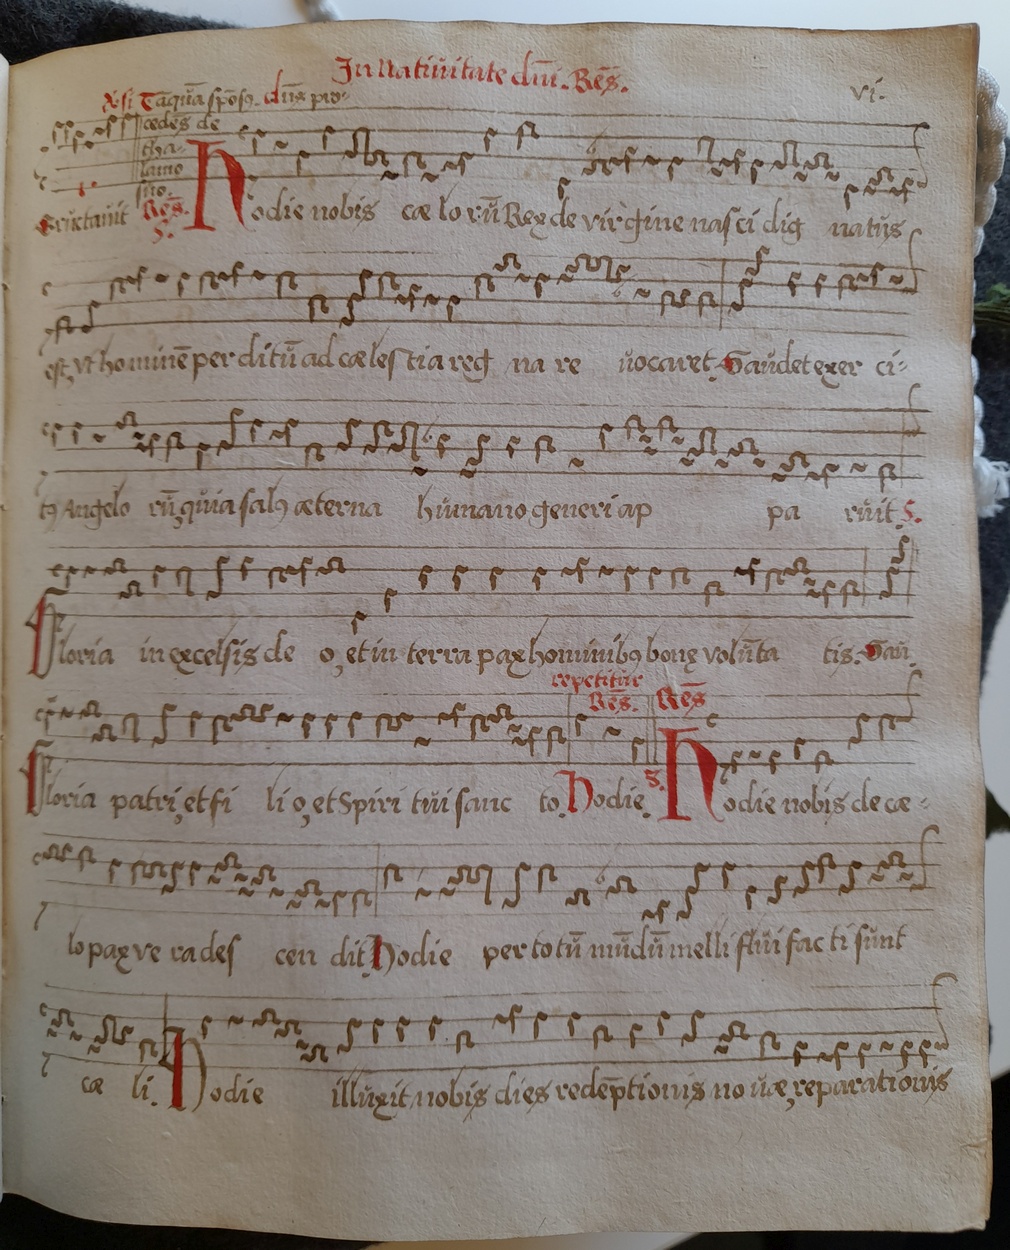 In Natiuitate dn̄i. Res̄.
vi.
Ꝟsi. Taqūa spōsꝯ. dn̄s pro-
cedēs de
tha-
lamo
suo.
Eructauit Res̄. Hodie nobis cæ lo rū Rex de virgine nasci dig natus
est, vt hominē per ditū ad cæles tia reg na re uocaret. Gaudet exer ci-
tꝯ Angelo rū, quia salꝯ æterna humano generi ap pa ruit. ℣.
Gloria in excelsis de o, et in terra pax hominibꝯ bonę volūta tis. Gau.
repetitur
Res̄. Res̄
Gloria patri, et fi li o, et Spiri tui sanc to. Hodie. Hodie nobis de cæ-
lo pax ve ra des cen dit. Hodie per totū mūdū melli flui fac ti sunt
cæ li. Hodie illuxit nobis dies redēptionis no uæ, reparationis